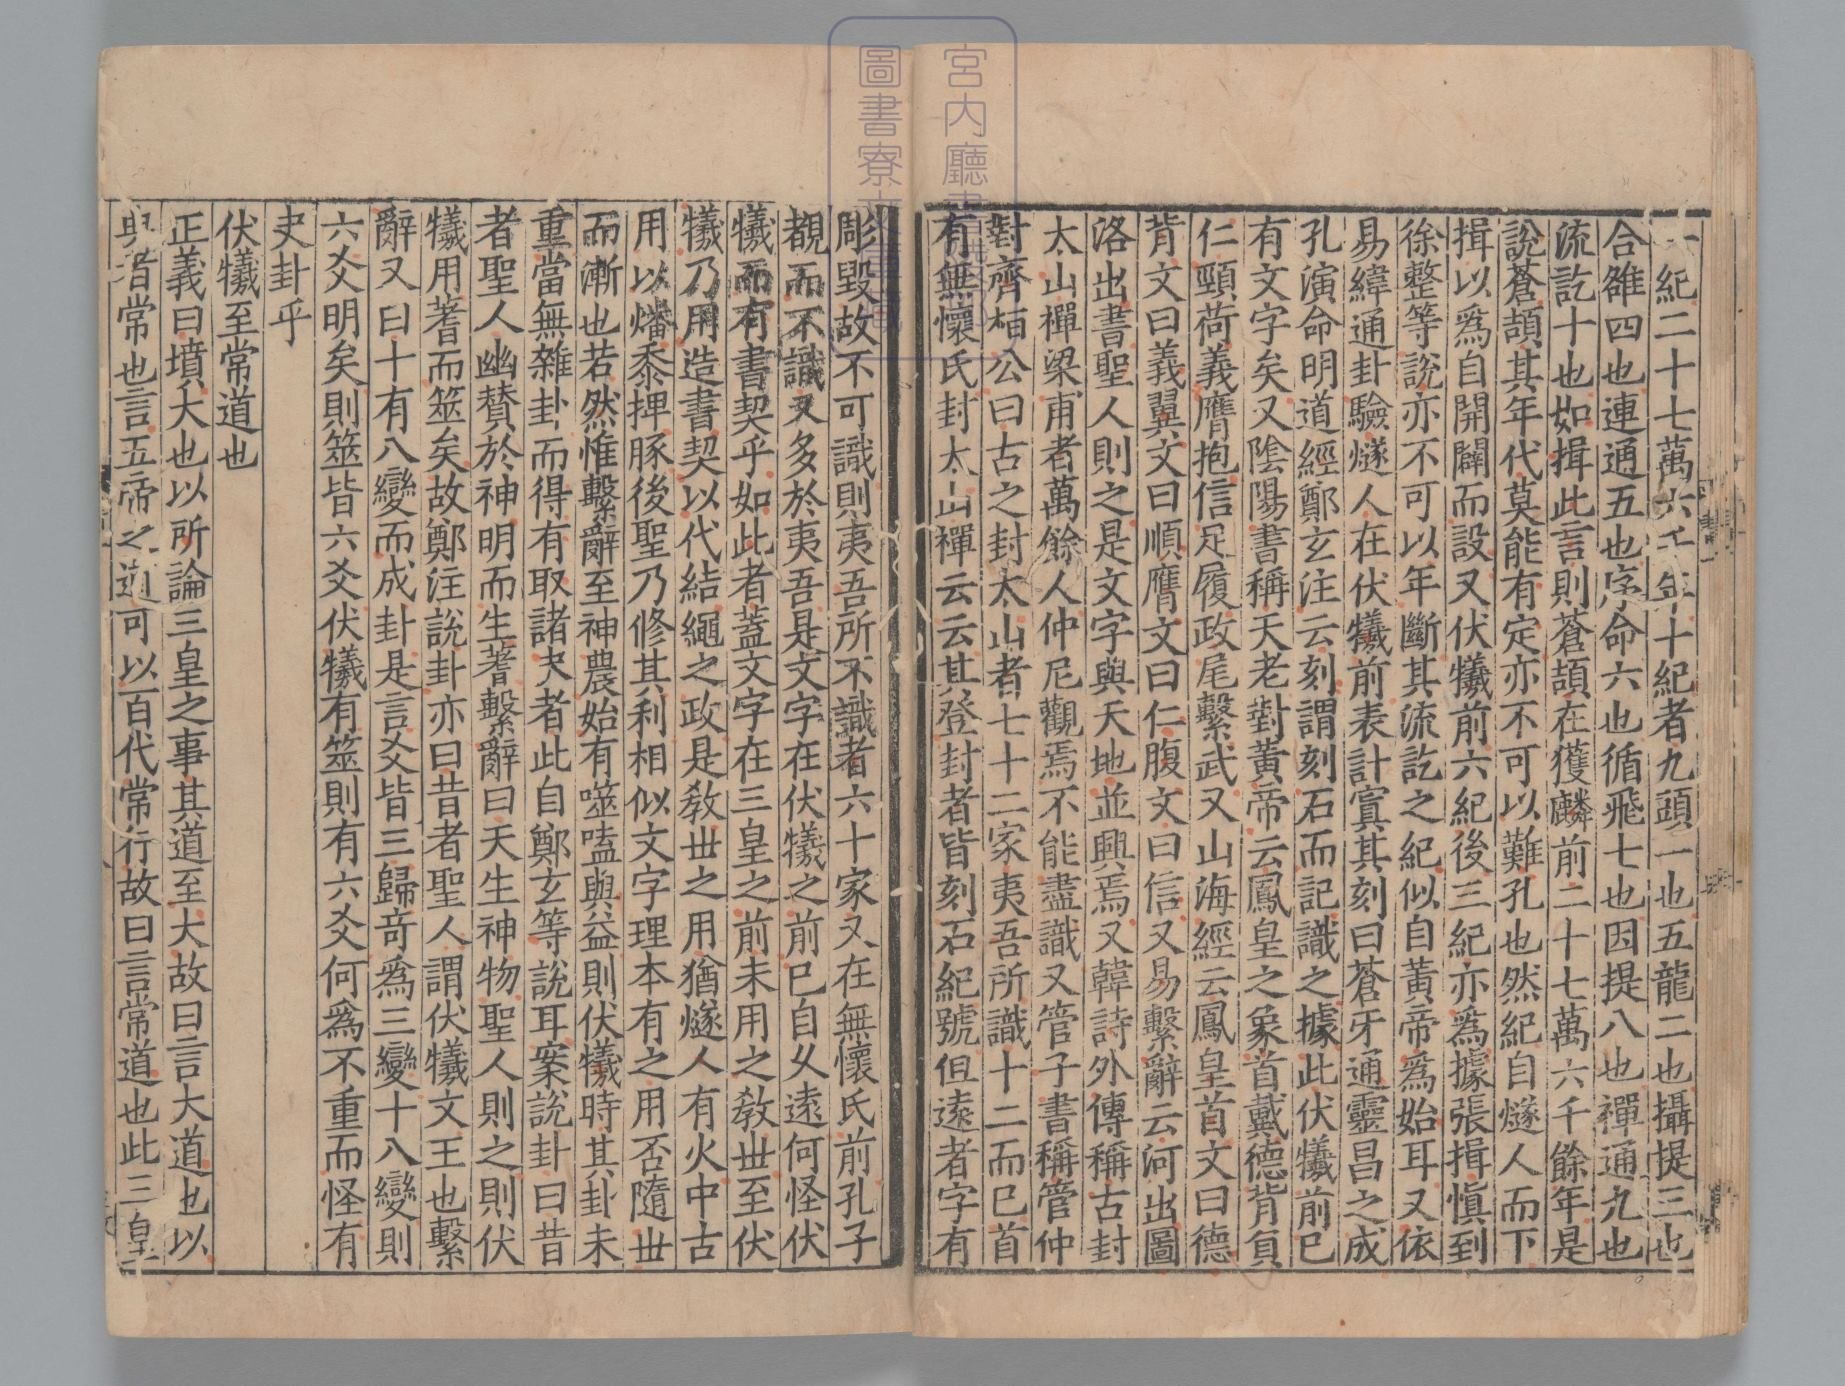 一紀二十七萬六千年十紀者九頭一也五龍二也攝提三也
合雒四也連通五也序命六也循飛七也因提八也禪通九也
流訖十也如揖此言則蒼頡在獲麟前二十七萬六千餘年是
說蒼頡其年代莫能有定亦不可以難孔也然紀自燧人而下
揖以爲自開闢而設又伏犧前六紀後三紀亦爲據張揖愼到
徐整等說亦不可以年斷其流訖之紀似自黃帝爲始耳又依
易緯通卦驗燧人在伏犧前表計寘其刻曰蒼牙通靈昌之成
孔演命明道經鄭玄注云刻謂刻石而記識之據此伏犧前已
有文字矣又陰陽書稱天老對黃帝云鳳皇之象首戴德背負
仁頸荷義膺抱信足履政尾繫武又山海經云鳳皇首文曰德
背文曰義翼文曰順膺文曰仁腹文曰信又易繫辭云河出圖
洛出書聖人則之是文字與天地並興焉又韓詩外傳稱古封
太山禪梁甫者萬餘人仲尼觀焉不能盡識又管子書稱管仲
對齊桓公曰古之封太山者七十二家夷吾所識十二而已首
有無懷氏封太山禪云云其登封者皆刻石紀號但遠者字有
彫毀故不可識則夷吾所不識者六十家又在無懷氏前孔子
覩而不識又多於夷吾是文字在伏犧之前已自久遠何怪伏
犧而有書契乎如此者蓋文字在三皇之前未用之教世至伏
犧乃用造書契以代結繩之政是教世之用猶燧人有火中古
用以燔黍捭豚後聖乃修其利相似文字理本有之用否隨世
而漸也若然惟繫辭至神農始有噬嗑與益則伏犧時其卦未
重當無雜卦而得有取諸夬者此自鄭玄等說耳案說卦曰昔
者聖人幽贊於神明而生蓍繫辭曰天生神物聖人則之則伏
犧用蓍而筮矣故鄭注說卦亦曰昔者聖人謂伏犧文王也繫
辭又曰十有八變而成卦是言爻皆三歸奇爲三變十八變則
六爻明矣則筮皆六爻伏犧有筮則有六爻何爲不重而怪有
夬卦乎
伏犧至常道也
正義曰墳大也以所論三皇之事其道至大故曰言大道也以
典者常也言五帝之道可以百代常行故曰言常道也此三皇
宮內廳書
圖書寮